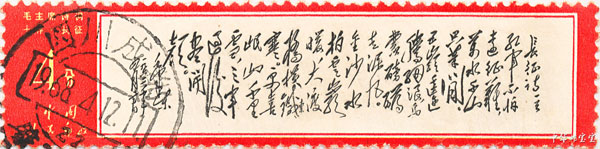 毛主席诗词
七律 长征
四川成
1968.4.12.11
长征诗一首
红军不怕
远征难
万水千山
只等闲
五岭逶迤
腾细浪乌
蒙磅礴
走泥丸
金沙水
拍云崖
暖大渡
桥横铁
索寒更喜
岷山千里
雪三军
过后
尽开
颜
毛泽东